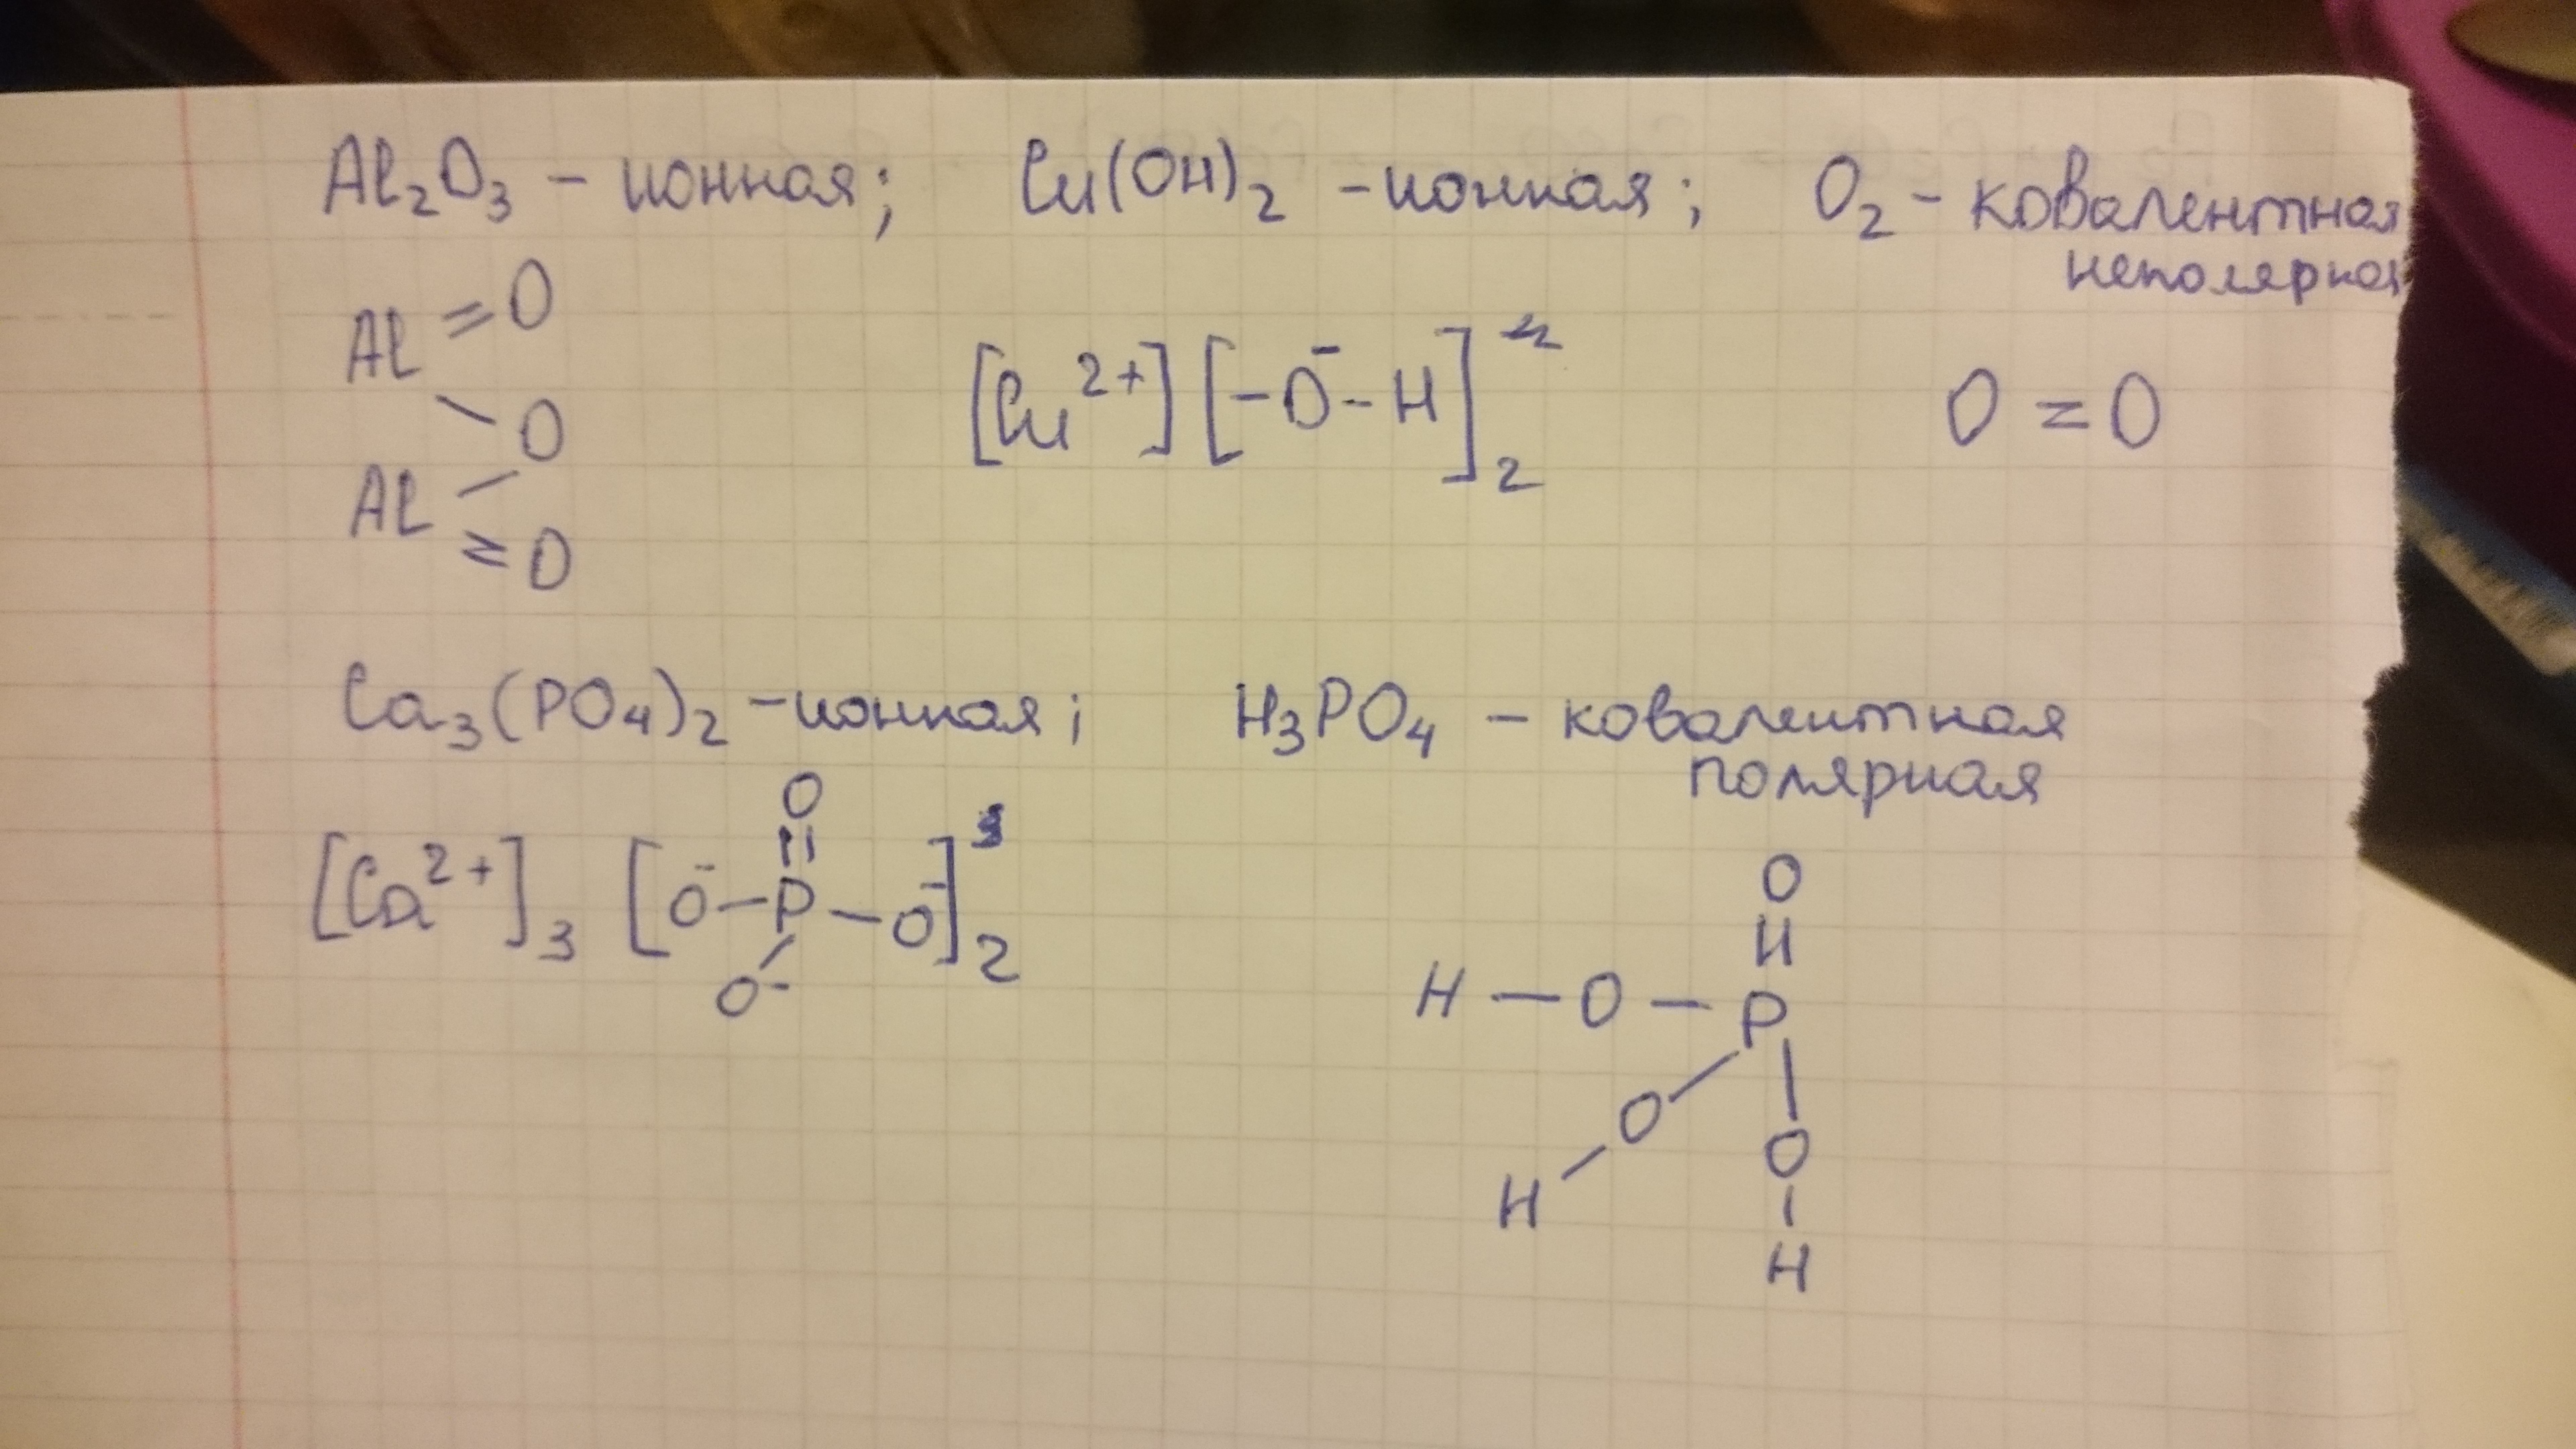 Al₂O₃ – ионная; Cu(OH)₂ – ионная; O₂ – ковалентная
неполярная
Al = O
O
Al
= O
[Cu²⁺] [–O⁻–H]₂
O = O
Ca₃(PO₄)₂ – ионная; H₃PO₄ – ковалентная
полярная
O
||
[Ca²⁺]₃ [O⁻–P–O⁻]₂
O⁻
O
||
H – O – P
O
O
H
H